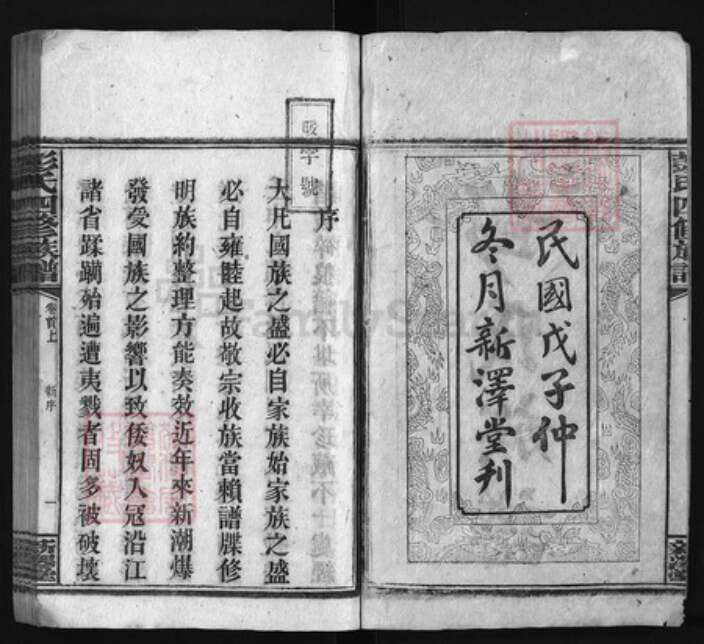 民國戊子仲
冬月新澤堂刊
彭氏四修族譜
字號
序
大凡國族之盛必自家族始家族之盛
必自雍睦起故敬宗收族當賴譜牒修
明族約整理方能奏效近年來新潮爆
發受國族之影響以致倭奴入冦沿江
諸省蹂躪殆遍遭夷戮者固多被破壞
彭氏四修族譜
卷首上
新序
一
新澤堂
FamilySearch